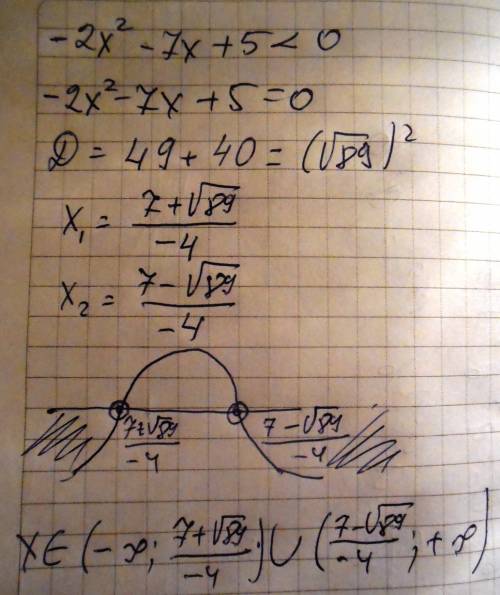 -2x² - 7x + 5 < 0
-2x² - 7x + 5 = 0
D = 49 + 40 = (√89)²
x₁ = (7 + √89)/(-4)
x₂ = (7 - √89)/(-4)
(7+√89)/(-4) (7-√89)/(-4)
x∈(-∞; (7+√89)/(-4))∪((7-√89)/(-4); +∞)